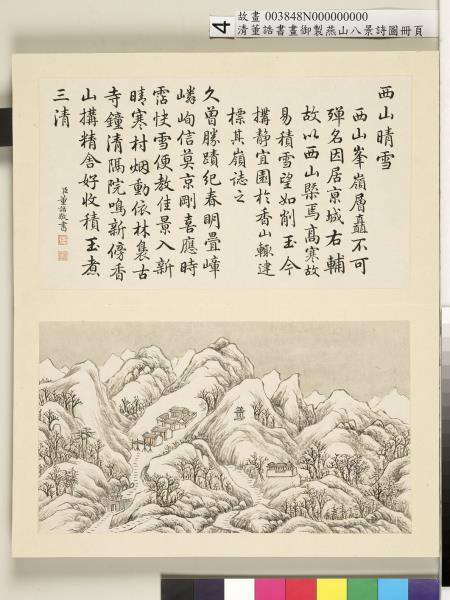 4
故畫 003848N000000000
清董誥書畫御製燕山八景詩圖冊頁
西山晴雪
西山峯嶺層矗不可
殫名因居京城右輔
故以西山槩焉高寒故
易積雪望如削玉今
搆靜宜園於香山輙建
標其嶺誌之
久曾勝蹟紀春明疊嶂
嶙峋信莫京剛喜應時
霑快雪便教佳景入新
晴寒村烟動依林裊古
寺鐘清隔院鳴新傍香
山搆精舍好收積玉煮
三清
臣董誥敬書